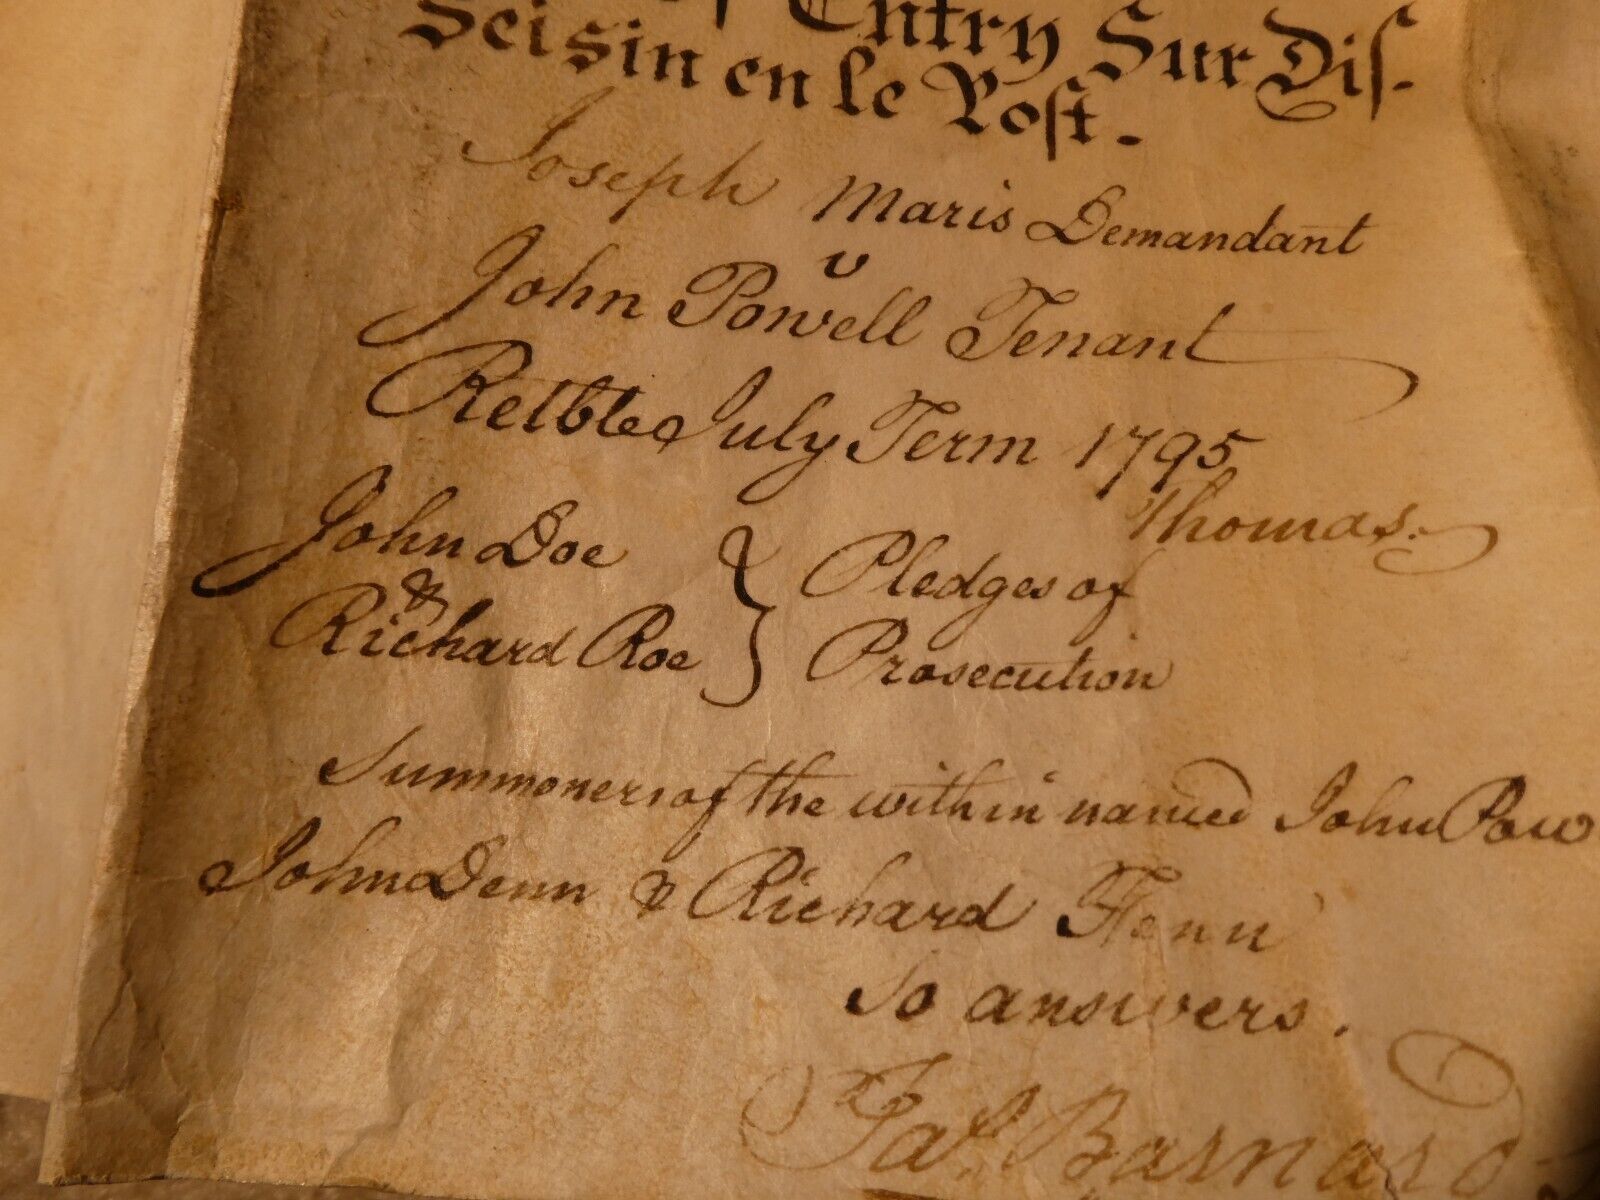 Entry Sur Dis-
Seisin en le Post.
Joseph Maris Demandant
v
John Powell Tenant
Retble July Term 1795
Thomas.
John Doe
&
Richard Roe } Pledges of
Prosecution
Summoners of the within named John Pow
John Denn & Richard Fenn
So answers.
Barnard